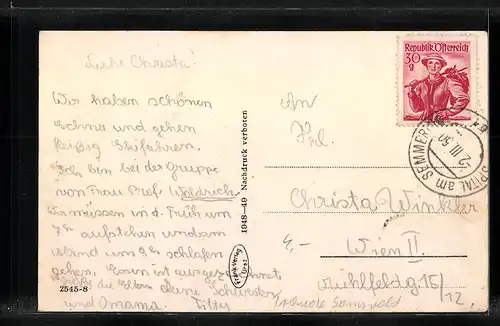 Liebe Christa!
Wir haben schönen
Schnee und gehen
fleißig Skifahren.
Ich bin bei der Gruppe
von Frau Prof. Waldrich
Wir müssen in d. Früh um
7h aufstehen und am
Abend um 9h schlafen
gehen. Essen ist ausgezeichnet
Grüße die Eltern deine Schwestern
und Omama.
2545-8
1948-49 Nachdruck verboten
Frank-Verlag Graz
Republik Österreich
30 g
SPITAL am SEMMERING
2 III 50
An
Frl.
Christa Winkler
Wien II
Mühlfeldg 15/12.